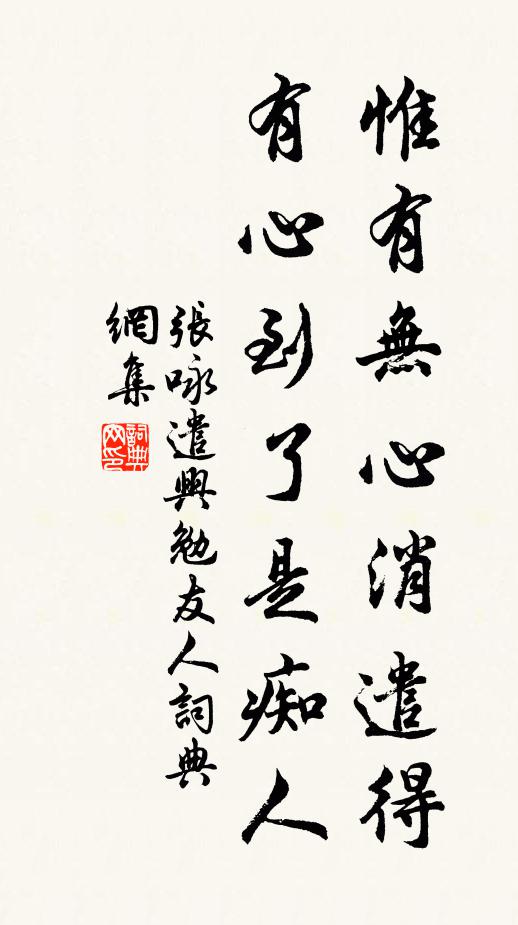 惟有無心消遣得
有心到了是痴人
張咏遣興勉友人詞典
網集
詞典
网印